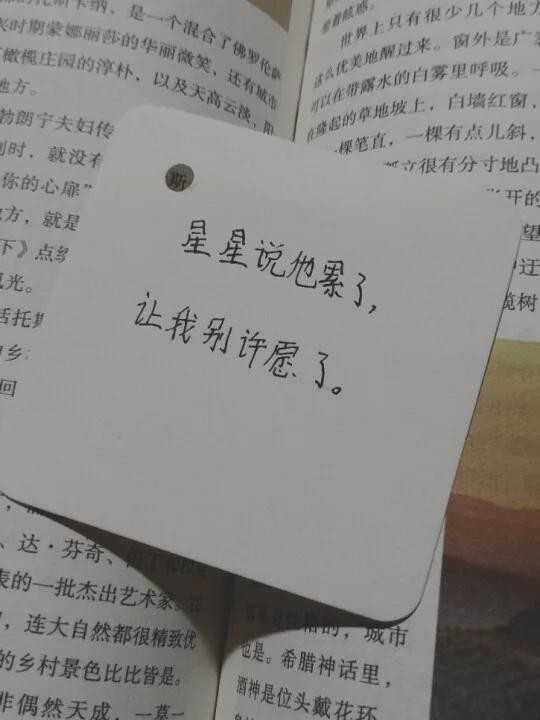 是一个混合了佛罗伦萨
兴时期蒙娜丽莎的华丽微笑，还有城市
橄榄庄园的淳朴，以及天高云淡、阳
地方。
勃朗宁夫妇传
到时，就没有
你的心扉”
地方，就是
下》点缀
风光。
活托斯
回
世界上只有很少几个地方
这么优美地醒过来。窗外是广袤
可以在带露水的白雾里呼吸。
在隆起的草地坡上，白墙红窗，
一棵笔直，一棵有点儿斜，
孤立很有分寸地凸
开的
望
迂
榄树
斯
星星说他累了，
让我别许愿了。
、达·芬奇、
表的一批杰出艺术家。在
，连大自然都很精致优
的乡村景色比比皆是。
非偶然天成，一草一
的，城市
也是。希腊神话里，
酒神是位头戴花环